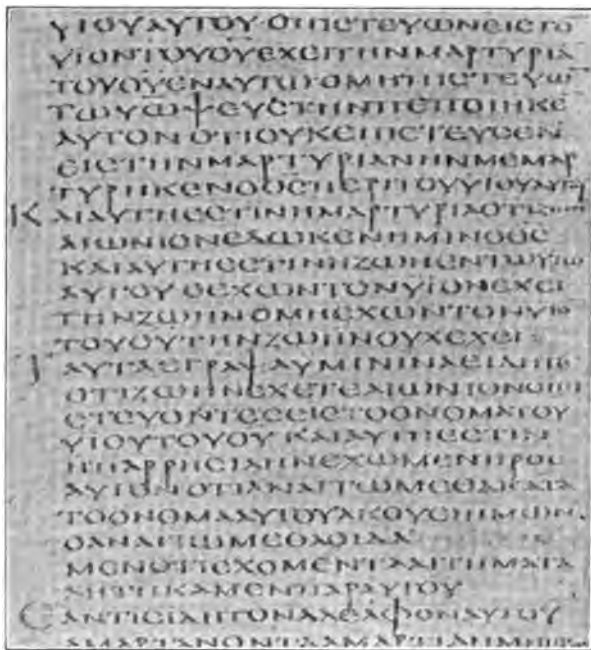 ΥΙΟΥΑΥΤΟΥ· ΟΠΙCΤΕΥΩΝΕΙCΤΟ
ΥΙΟΝΤΟΥΘΥΕΧΕΙΤΗΝΜΑΡΤΥΡΙΑ
ΤΟΥΘΥΕΝΑΥΤΩ·ΟΜΗΠΙCΤΕΥΩ
ΤΩΥΩΨΕΥCΤΗΝΠΕΠΟΙΗΚΕ
ΑΥΤΟΝΟΤΙΟΥΚΕΠΙCΤΕΥCΕΝ
ΕΙCΤΗΝΜΑΡΤΥΡΙΑΝΗΝΜΕΜΑΡ
ΤΥΡΗΚΕΝΟΘCΠΕΡΙΤΟΥΥΙΟΥΑΥΤΟΥ
ΚΑΙΑΥΤΗΕCΤΙΝΗΜΑΡΤΥΡΙΑΟΤΙ
ΑΙΩΝΙΟΝΕΔΩΚΕΝΗΜΙΝΟΘC
ΚΑΙΑΥΤΗΕCΤΙΝΗΖΩΗΕΝΤΩΥΙΩ
ΑΥΤΟΥ ΟΕΧΩΝΤΟΝΥΙΟΝΕΧΕΙ
ΤΗΝΖΩΗΝΟΜΗΕΧΩΝΤΟΝΥΙΟ
ΤΟΥΘΥΤΗΝΖΩΗΝΟΥΚΕΧΕΙ
ΤΑΥΤΑΕΓΡΑΨΑΥΜΙΝΙΝΑΕΙΔΗΤΕ
ΟΤΙΖΩΗΝΕΧΕΤΕΑΙΩΝΙΟΝΟΙΠΙ
CΤΕΥΟΝΤΕCΕΙCΤΟΟΝΟΜΑΤΟΥ
ΥΙΟΥΤΟΥΘΥ ΚΑΙΑΥΤΗΕCΤΙΝ
ΗΠΑΡΡΗCΙΑΗΝΕΧΩΜΕΝΠΡΟC
ΑΥΤΟΝΟΤΙΑΝΑΙΤΩΜΕΘΑΚΑΤΑ
ΤΟΟΝΟΜΑΑΥΤΟΥΑΚΟΥΕΙΗΜΩΝ
ΟΑΝΑΙΤΩΜΕΘΑΟΙΔΑ
ΜΕΝΟΤΙΕΧΟΜΕΝΤΑΑΙΤΗΜΑΤΑ
ΑΗΤΗΚΑΜΕΝΠΑΡΑΥΤΟΥ
ΕΑΝΤΙCΙΔΗΤΟΝΑΔΕΛΦΟΝΑΥΤΟΥ
ΑΜΑΡΤΑΝΟΝΤΑΑΜΑΡΤΙΑΝΜΗ